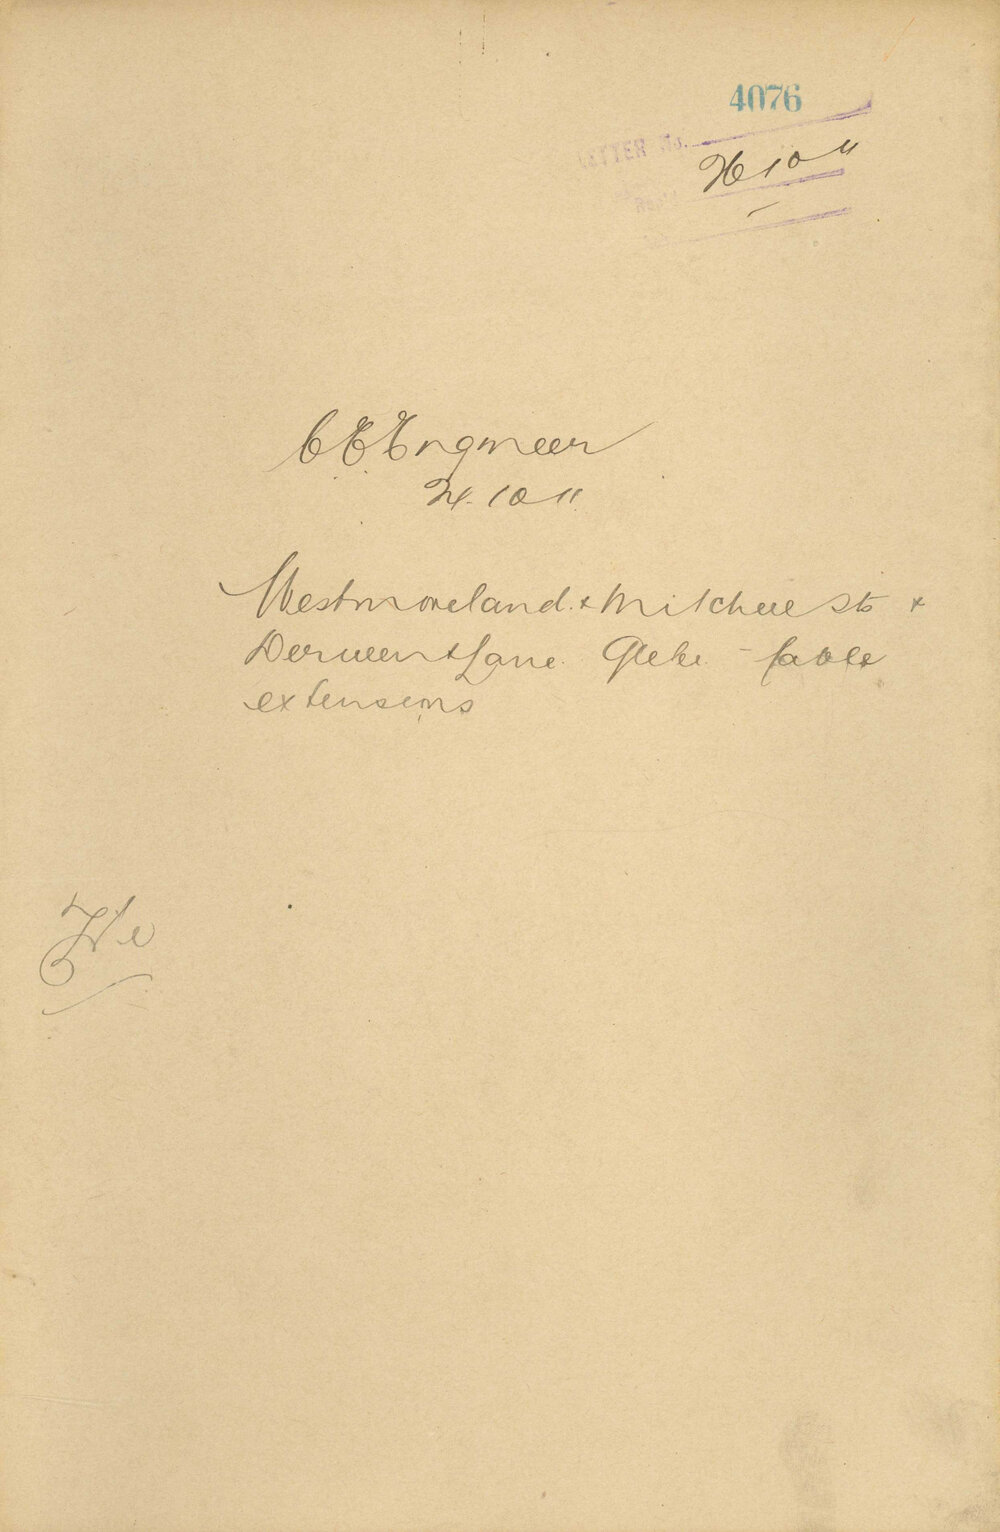 4076
LETTER No.
26 10 11
Rec'd
C E Engineer
24. 10 11
Westmoreland & Mitchell Sts &
Derwent Lane Glebe - Cable
extensions